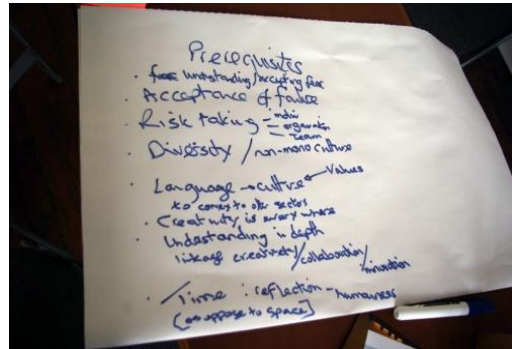 Prerequisites
· understanding/accepting fear
· Acceptance of failure
· Risk taking - indiv
- organisation
- team
· Diversity / non-mono culture
· Language → culture ← Values
to comes to other sectors
· Creativity is every where
· Understanding in depth
linkage creativity/collaboration/innovation
· Time : reflection - humanness
[as oppose to space]